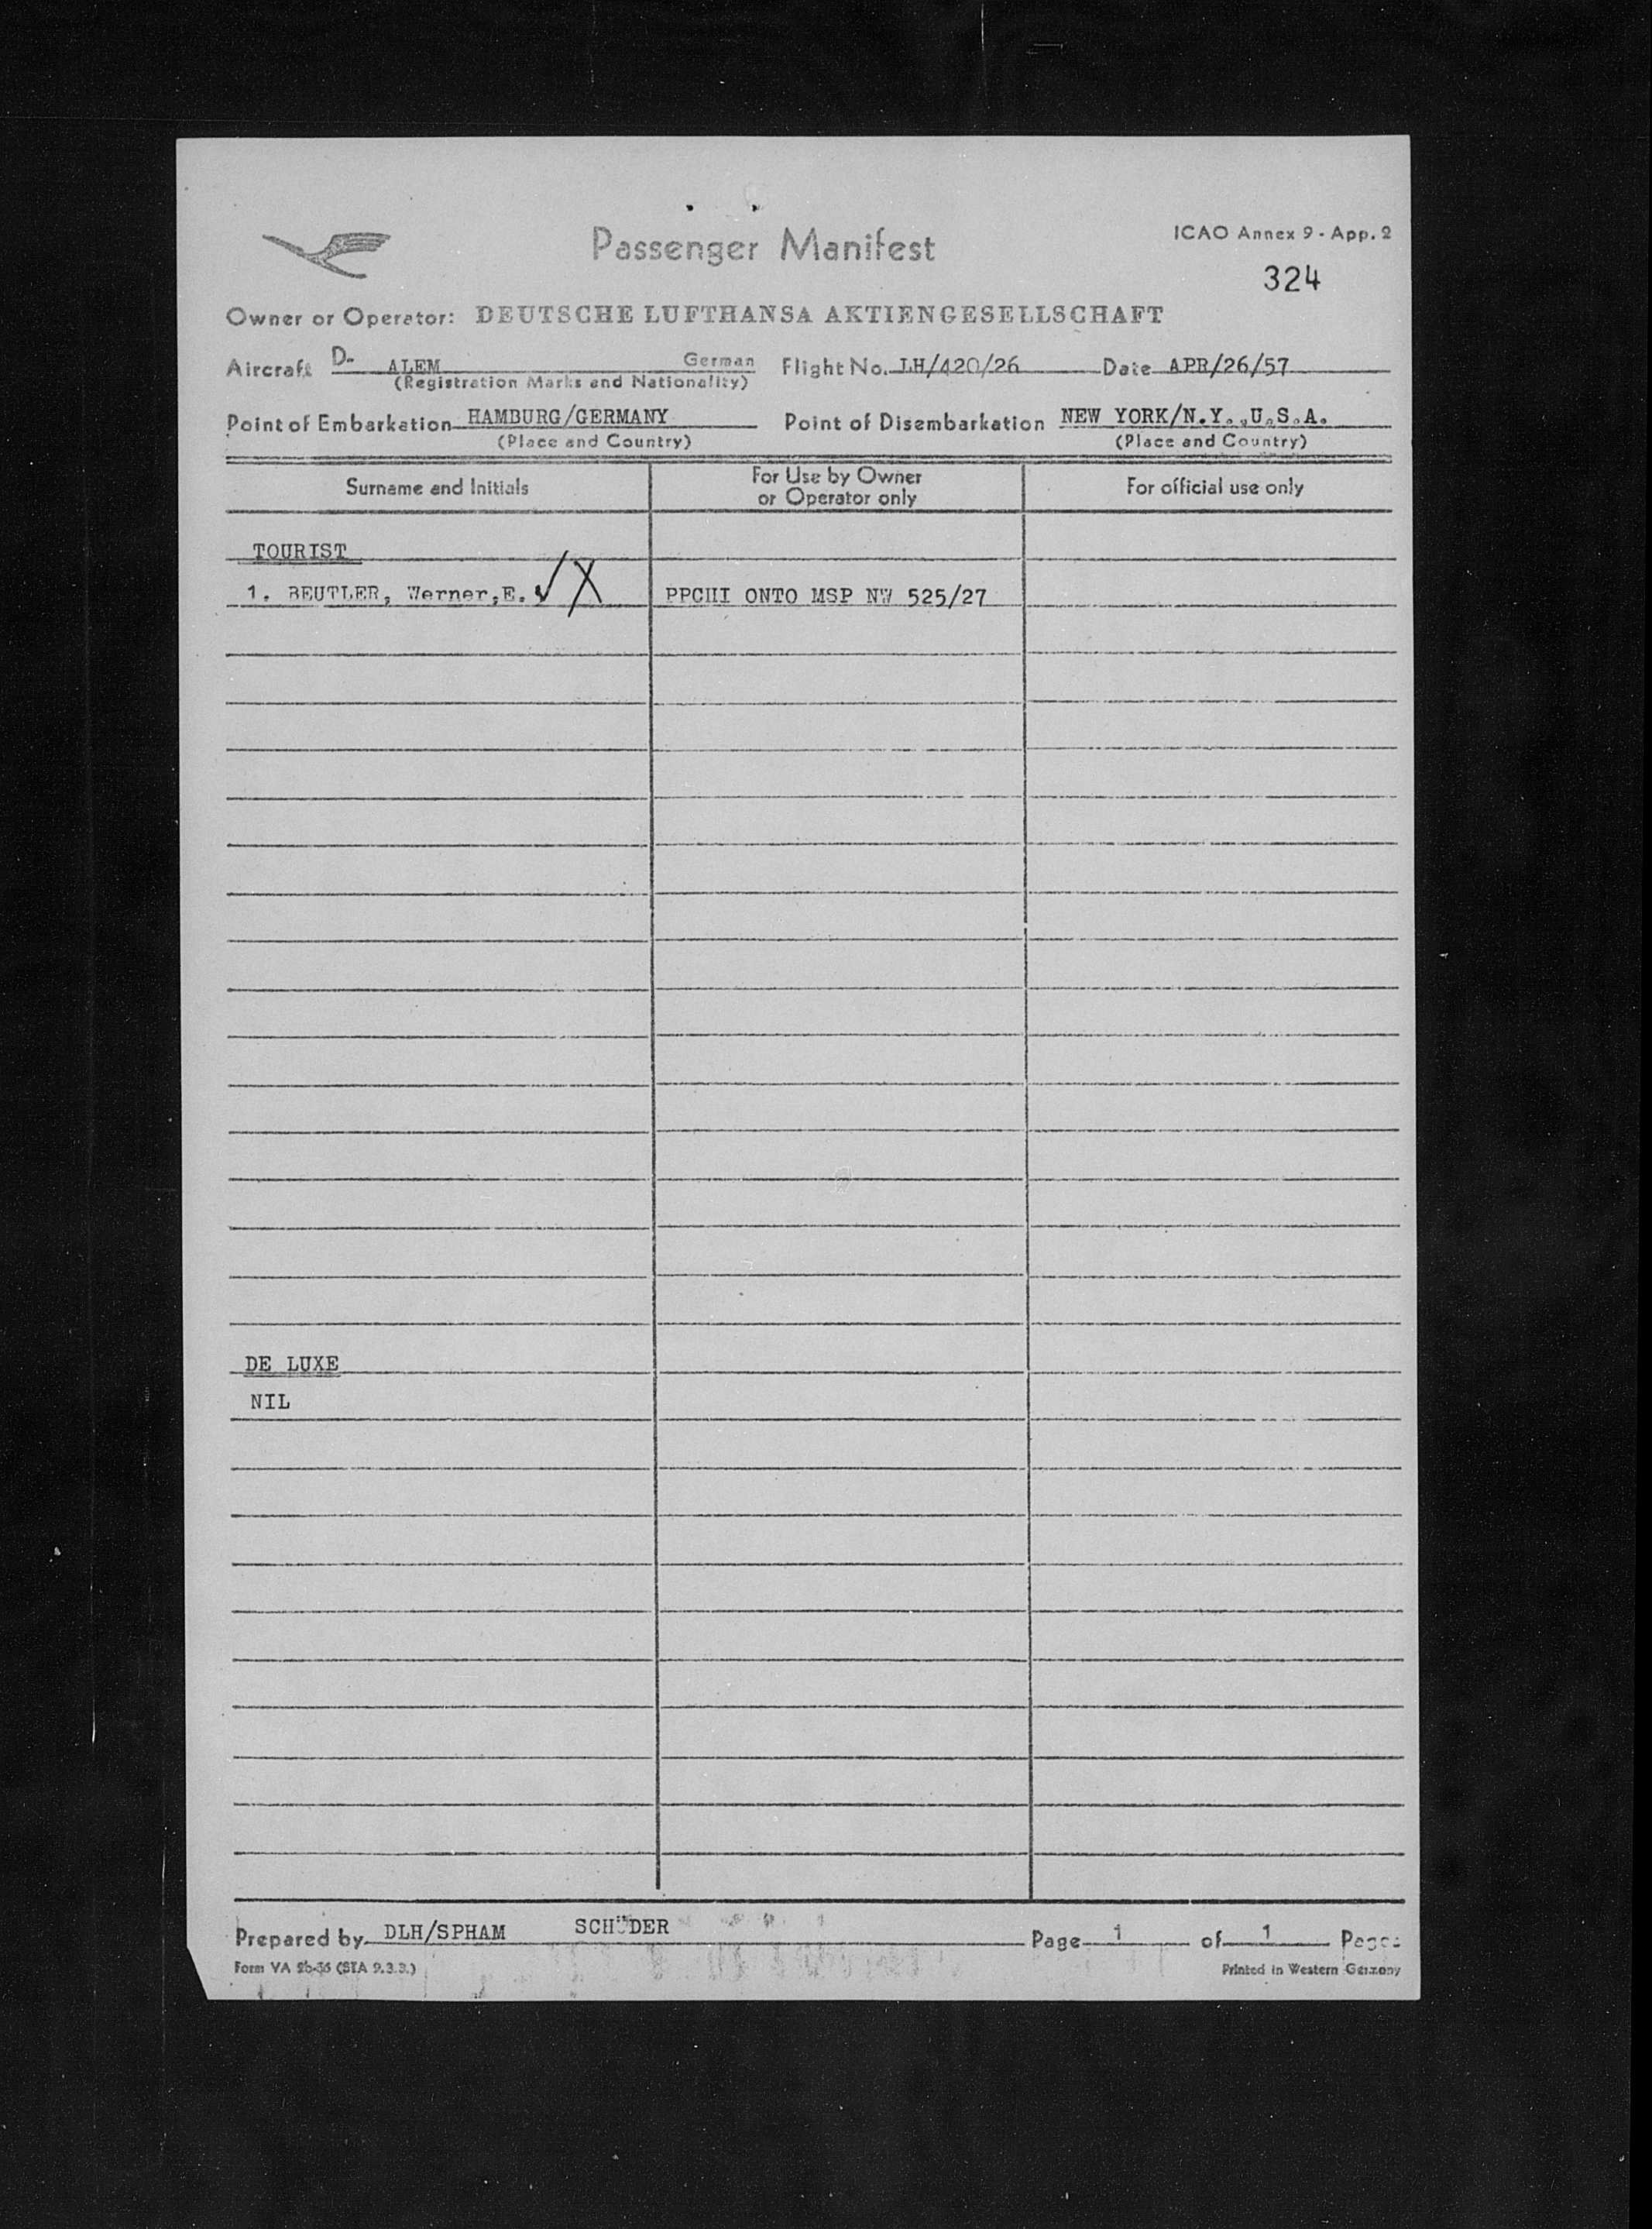 Passenger Manifest
ICAO Annex 9 - App. 2
324
Owner or Operator: DEUTSCHE LUFTHANSA AKTIENGESELLSCHAFT
Aircraft D- ALEM German Flight No. LH/420/26 Date APR/26/57
(Registration Marks and Nationality)
Point of Embarkation HAMBURG/GERMANY Point of Disembarkation NEW YORK/N.Y.,U.S.A.
(Place and Country) (Place and Country)
Surname and Initials For Use by Owner or Operator only For official use only
TOURIST
1. BEUTLER, Werner,E. ✓ X PPCHI ONTO MSP NW 525/27
DE LUXE
NIL
Prepared by DLH/SPHAM SCHÜDER Page 1 of 1 Pages
Form VA 2b-56 (STA 9.3.3.) Printed in Western Germany